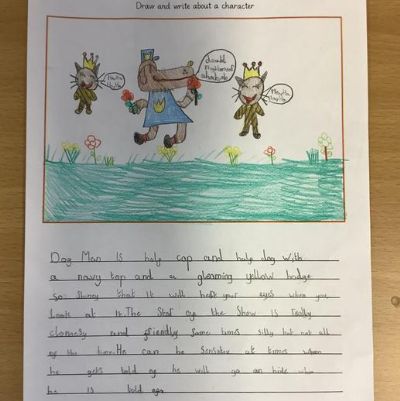 Draw and write about a character
Dog Man IS half cop and half dog with
a navy top and a gleaming yellow badge
so shiney that it will hert your eyes when you
Look at it. The Star of the Show is really
clumsy and friendly some times silly but not all
of the time. He can be Sensitive at times when
he gets told of he will go an hide when
he is told